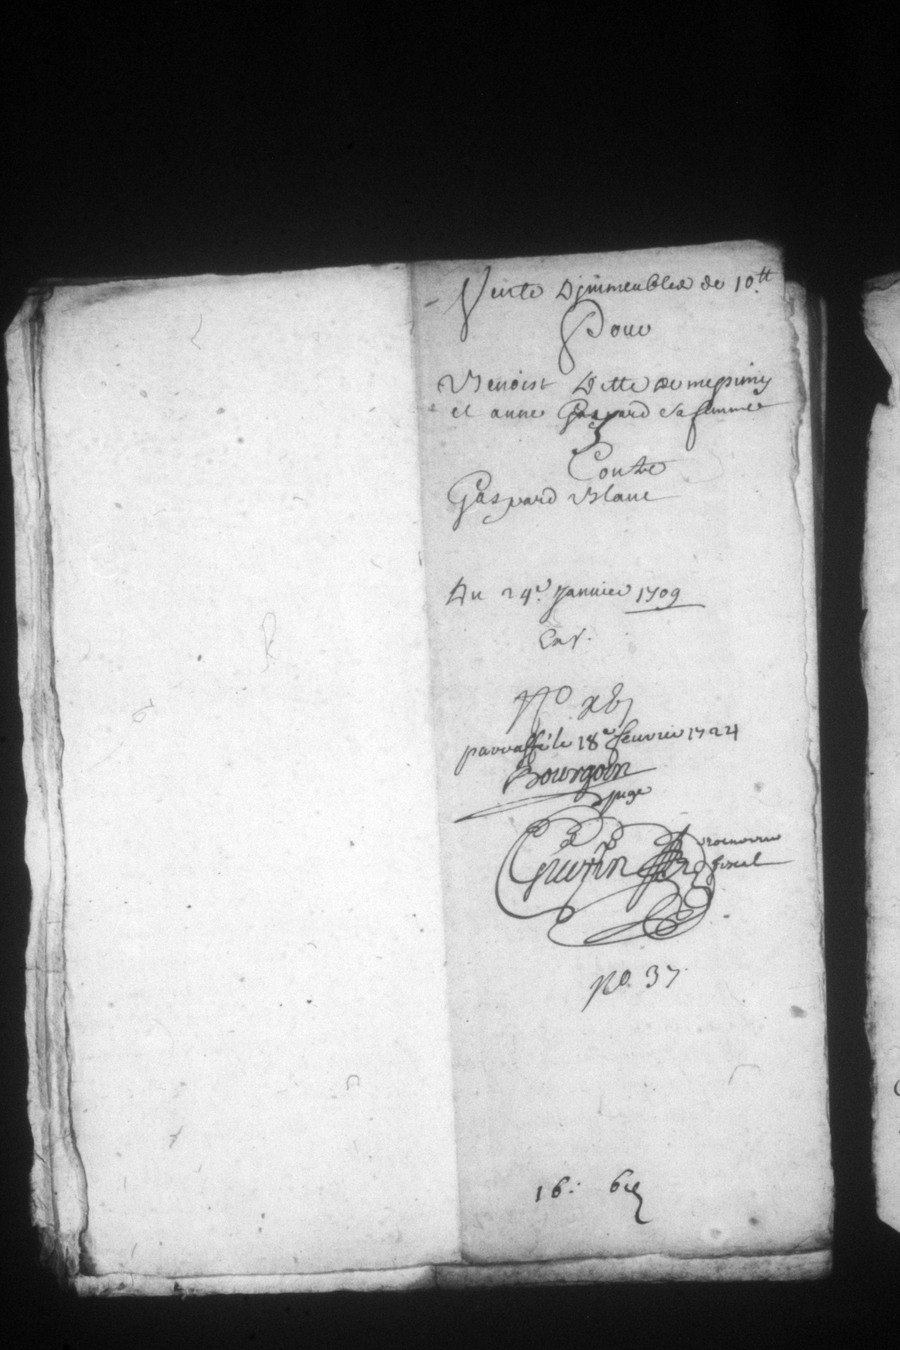 Vente D'jmmeubles de 10.tt
Pour
Benoist Ditte de mepimy
et anne Gaspard sa femme
Contre
Gaspard Blanc
Du 24.e Janvier 1709
No
parraffé le 18e feuvrie 1724
Bourgoin
juge
Guerin procureur
fiscal
no. 37
16: